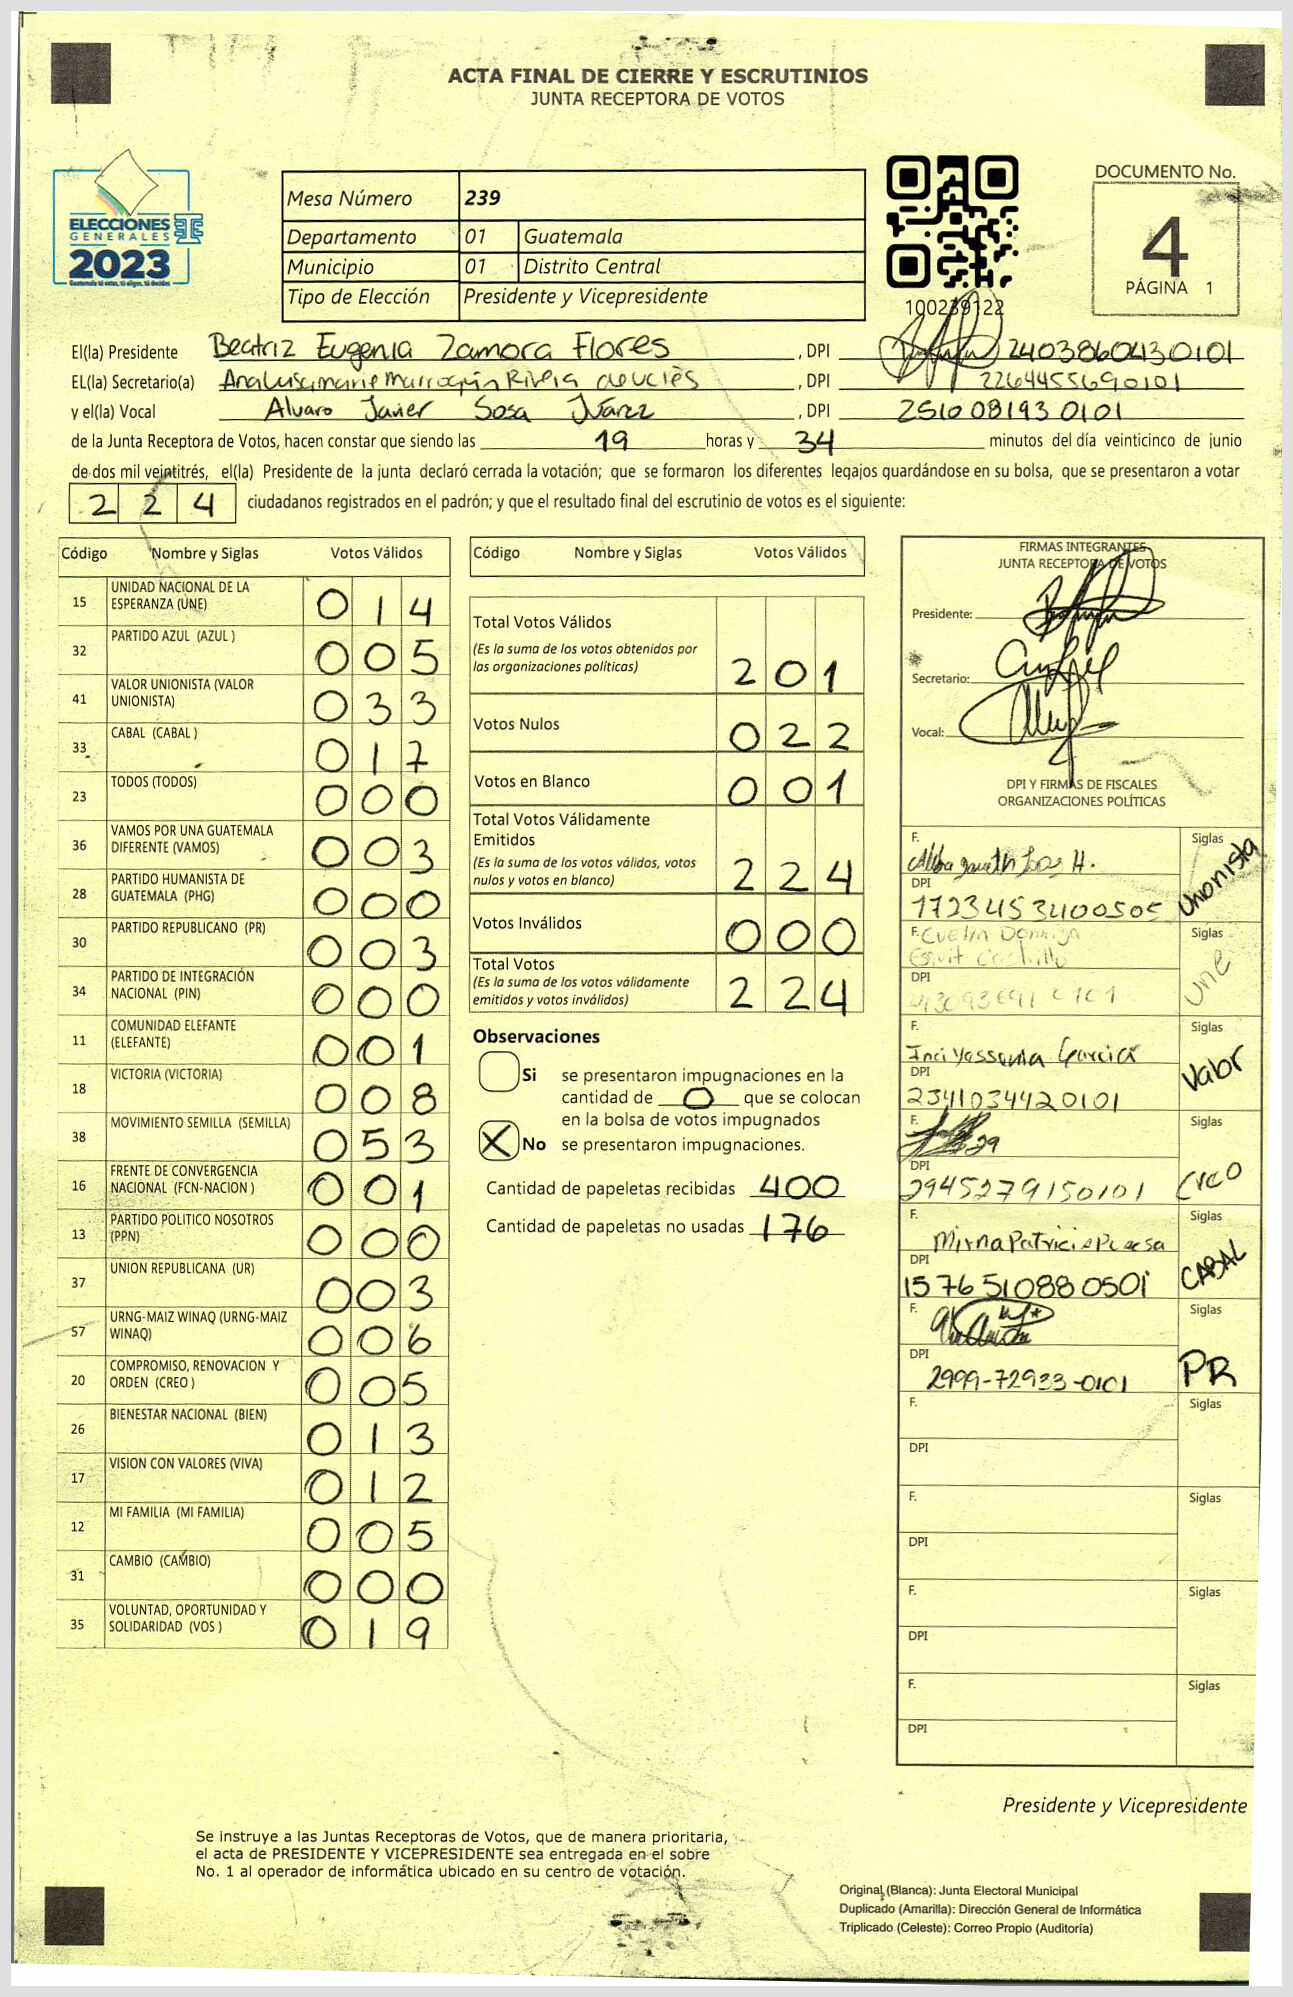 ACTA FINAL DE CIERRE Y ESCRUTINIOS
JUNTA RECEPTORA DE VOTOS
ELECCIONES
GENERALES
2023
Guatemala tú votas, tú eliges, tú decides
Mesa Número 239
Departamento 01 Guatemala
Municipio 01 Distrito Central
Tipo de Elección Presidente y Vicepresidente
100239122
DOCUMENTO No.
4
PÁGINA 1
El(la) Presidente Beatriz Eugenia Zamora Flores, DPI 2403860430101
EL(la) Secretario(a) Analuisa marie Marroquín Rivera, DPI 2264455690101
y el(la) Vocal Alvaro Javier Sosa Juárez, DPI 2510081930101
de la Junta Receptora de Votos, hacen constar que siendo las 19 horas y 34 minutos del día veinticinco de junio
de dos mil veintitrés, el(la) Presidente de la junta declaró cerrada la votación; que se formaron los diferentes legajos guardándose en su bolsa, que se presentaron a votar
224 ciudadanos registrados en el padrón; y que el resultado final del escrutinio de votos es el siguiente:
Código Nombre y Siglas Votos Válidos
15 UNIDAD NACIONAL DE LA ESPERANZA (UNE) 014
32 PARTIDO AZUL (AZUL ) 005
41 VALOR UNIONISTA (VALOR UNIONISTA) 033
33 CABAL (CABAL ) 017
23 TODOS (TODOS) 000
36 VAMOS POR UNA GUATEMALA DIFERENTE (VAMOS) 003
28 PARTIDO HUMANISTA DE GUATEMALA (PHG) 000
30 PARTIDO REPUBLICANO (PR) 003
34 PARTIDO DE INTEGRACIÓN NACIONAL (PIN) 000
11 COMUNIDAD ELEFANTE (ELEFANTE) 001
18 VICTORIA (VICTORIA) 008
38 MOVIMIENTO SEMILLA (SEMILLA) 053
16 FRENTE DE CONVERGENCIA NACIONAL (FCN-NACION ) 001
13 PARTIDO POLITICO NOSOTROS (PPN) 000
37 UNION REPUBLICANA (UR) 003
57 URNG-MAIZ WINAQ (URNG-MAIZ WINAQ) 006
20 COMPROMISO, RENOVACION Y ORDEN (CREO ) 005
26 BIENESTAR NACIONAL (BIEN) 013
17 VISION CON VALORES (VIVA) 012
12 MI FAMILIA (MI FAMILIA) 005
31 CAMBIO (CAMBIO) 000
35 VOLUNTAD, OPORTUNIDAD Y SOLIDARIDAD (VOS ) 019
Código Nombre y Siglas Votos Válidos
Total Votos Válidos
(Es la suma de los votos obtenidos por
las organizaciones políticas) 201
Votos Nulos 022
Votos en Blanco 001
Total Votos Válidamente
Emitidos
(Es la suma de los votos válidos, votos
nulos y votos en blanco) 224
Votos Inválidos 000
Total Votos
(Es la suma de los votos válidamente
emitidos y votos inválidos) 224
Observaciones
Si se presentaron impugnaciones en la
cantidad de 0 que se colocan
en la bolsa de votos impugnados
X No se presentaron impugnaciones.
Cantidad de papeletas recibidas 400
Cantidad de papeletas no usadas 176
FIRMAS INTEGRANTES
JUNTA RECEPTORA DE VOTOS
Presidente:
Secretario:
Vocal:
DPI Y FIRMAS DE FISCALES
ORGANIZACIONES POLÍTICAS
F. Siglas
DPI 1723453400505 Unionista
F. Evelin Siglas
DPI Une
F. Siglas
Garcia
DPI 2341034420101 Valor
F. Siglas
DPI 2945279150101 Creo
F. Mirna Patricia Siglas
DPI 1576510880501 CABAL
F. Siglas
DPI 2999-72933-0101 PR
F. Siglas
DPI
F. Siglas
DPI
F. Siglas
DPI
F. Siglas
DPI
Presidente y Vicepresidente
Se instruye a las Juntas Receptoras de Votos, que de manera prioritaria,
el acta de PRESIDENTE Y VICEPRESIDENTE sea entregada en el sobre
No. 1 al operador de informática ubicado en su centro de votación.
Original (Blanca): Junta Electoral Municipal
Duplicado (Amarilla): Dirección General de Informática
Triplicado (Celeste): Correo Propio (Auditoría)